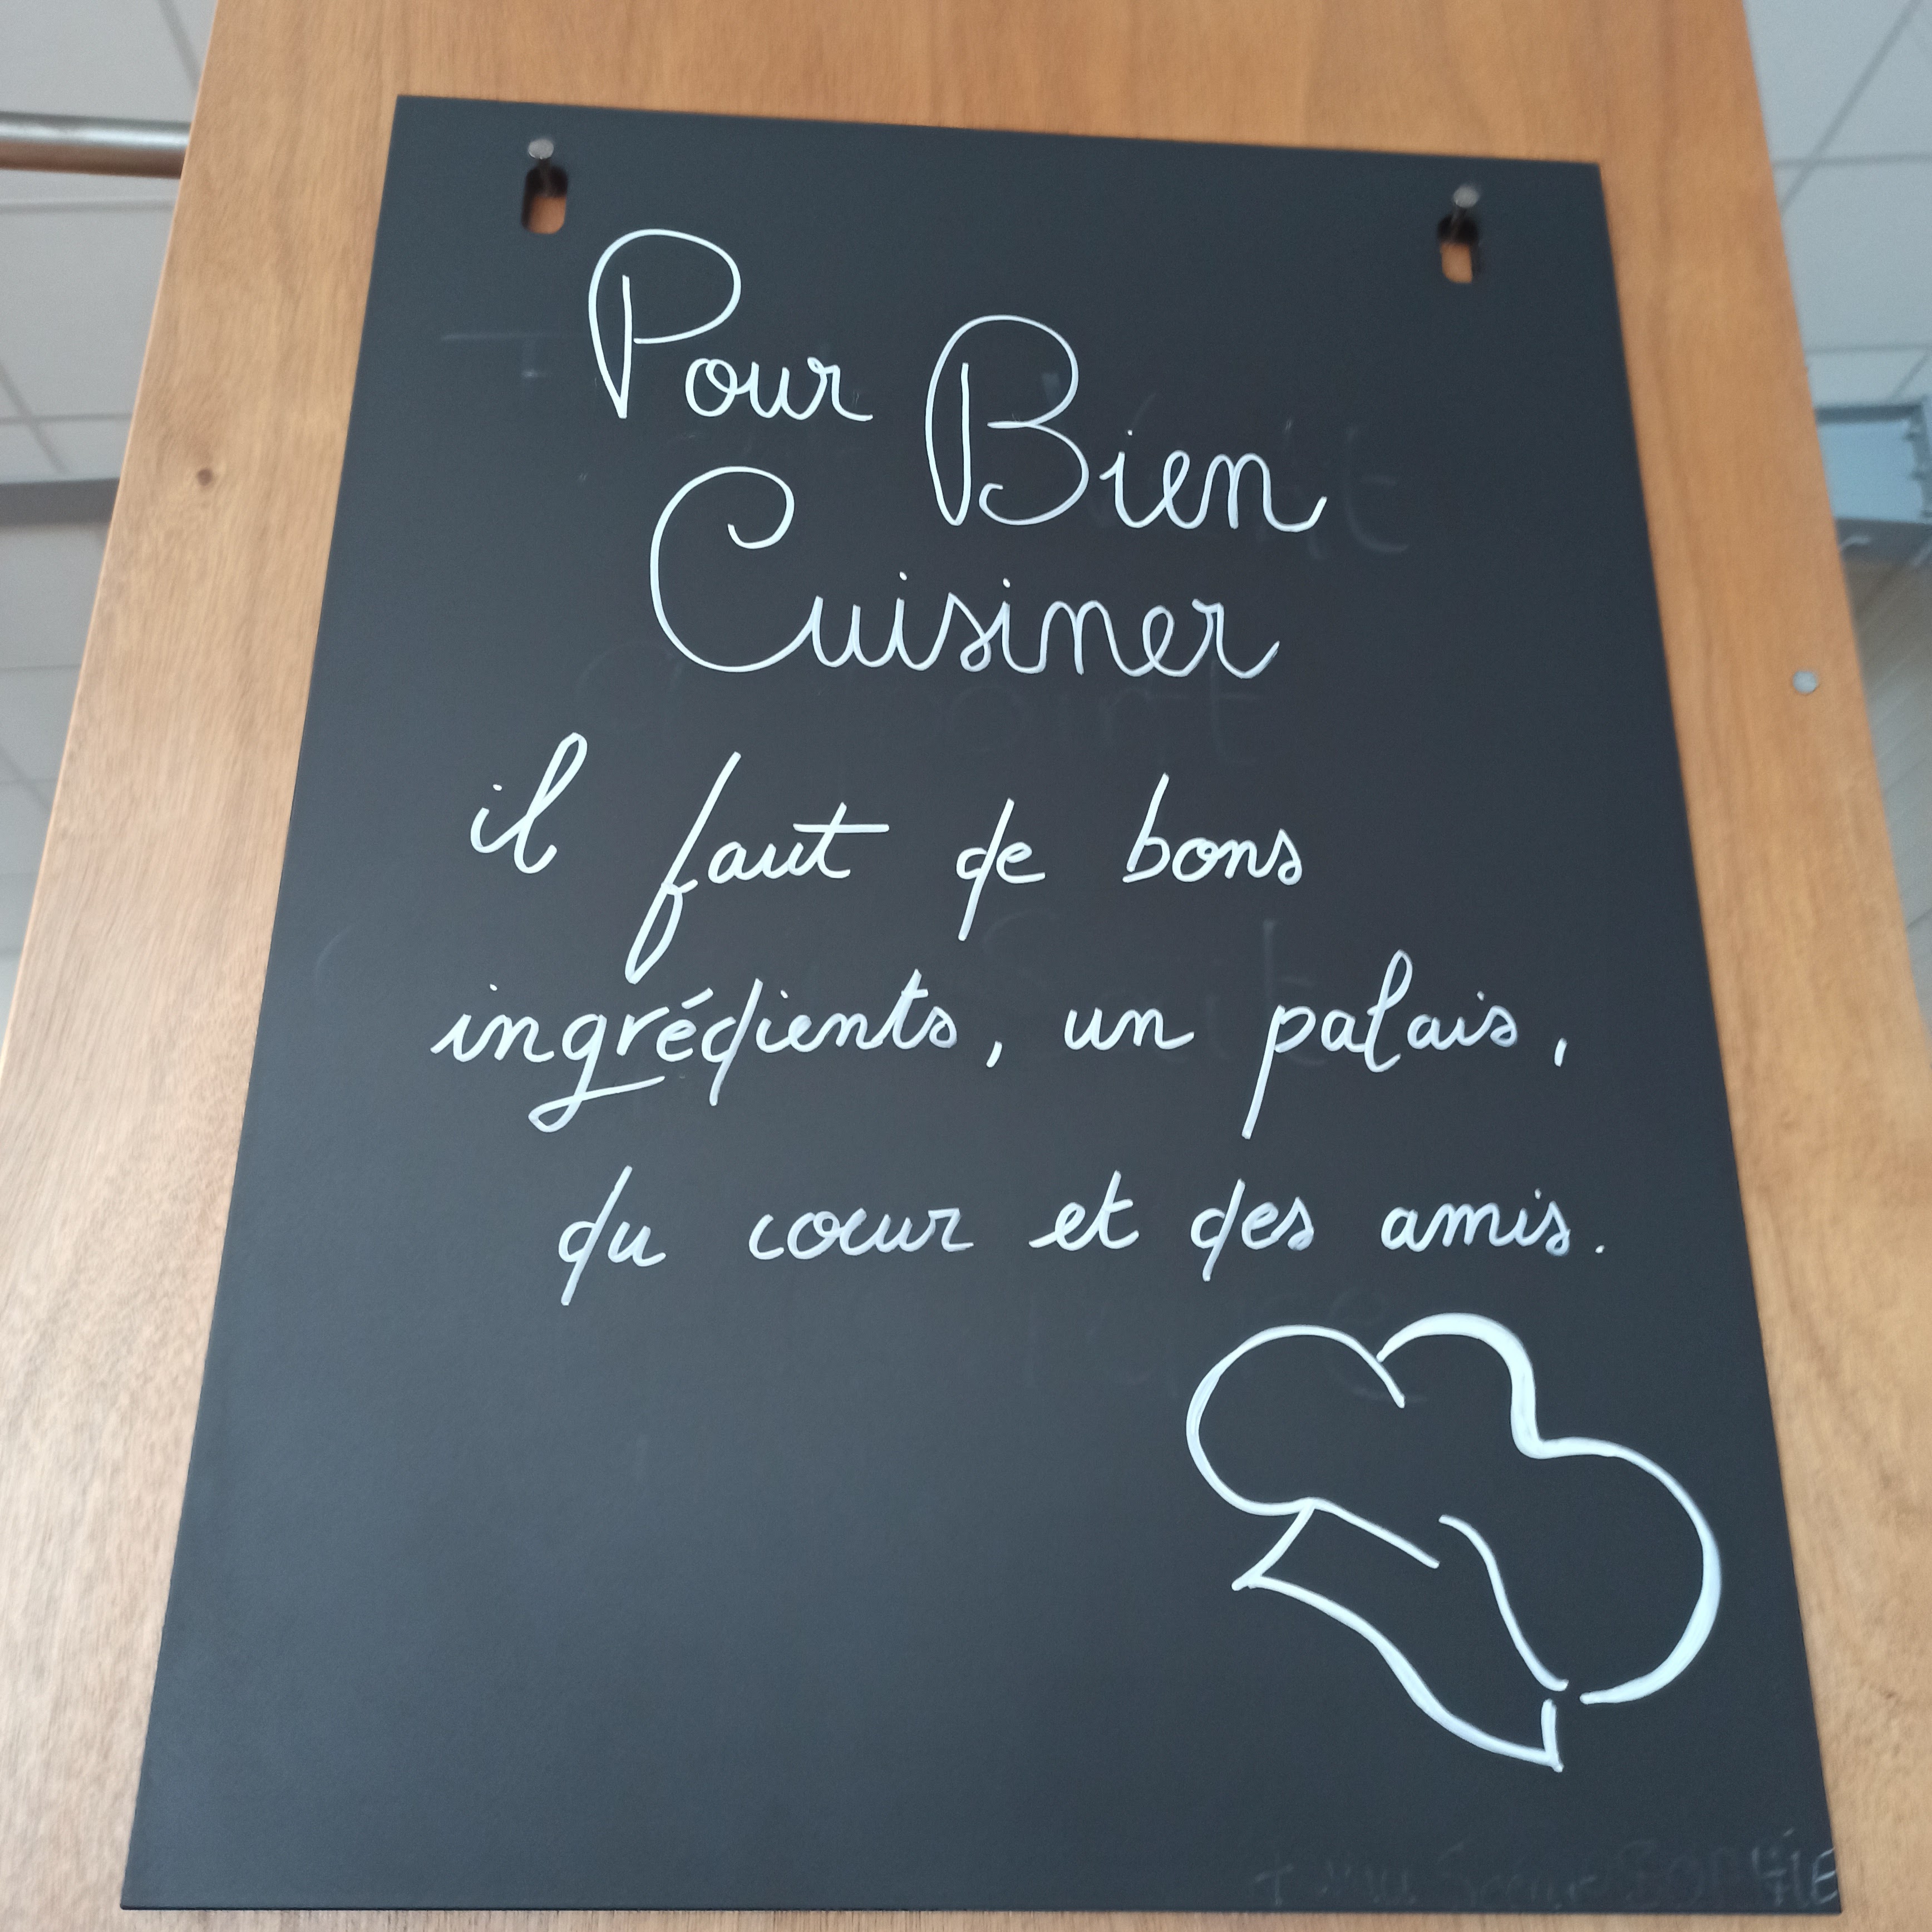 Pour Bien
Cuisiner
il faut de bons
ingrédients, un palais,
du cœur et des amis.